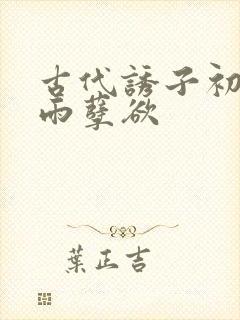 古代誘子初
雨孽欲
葉正吉